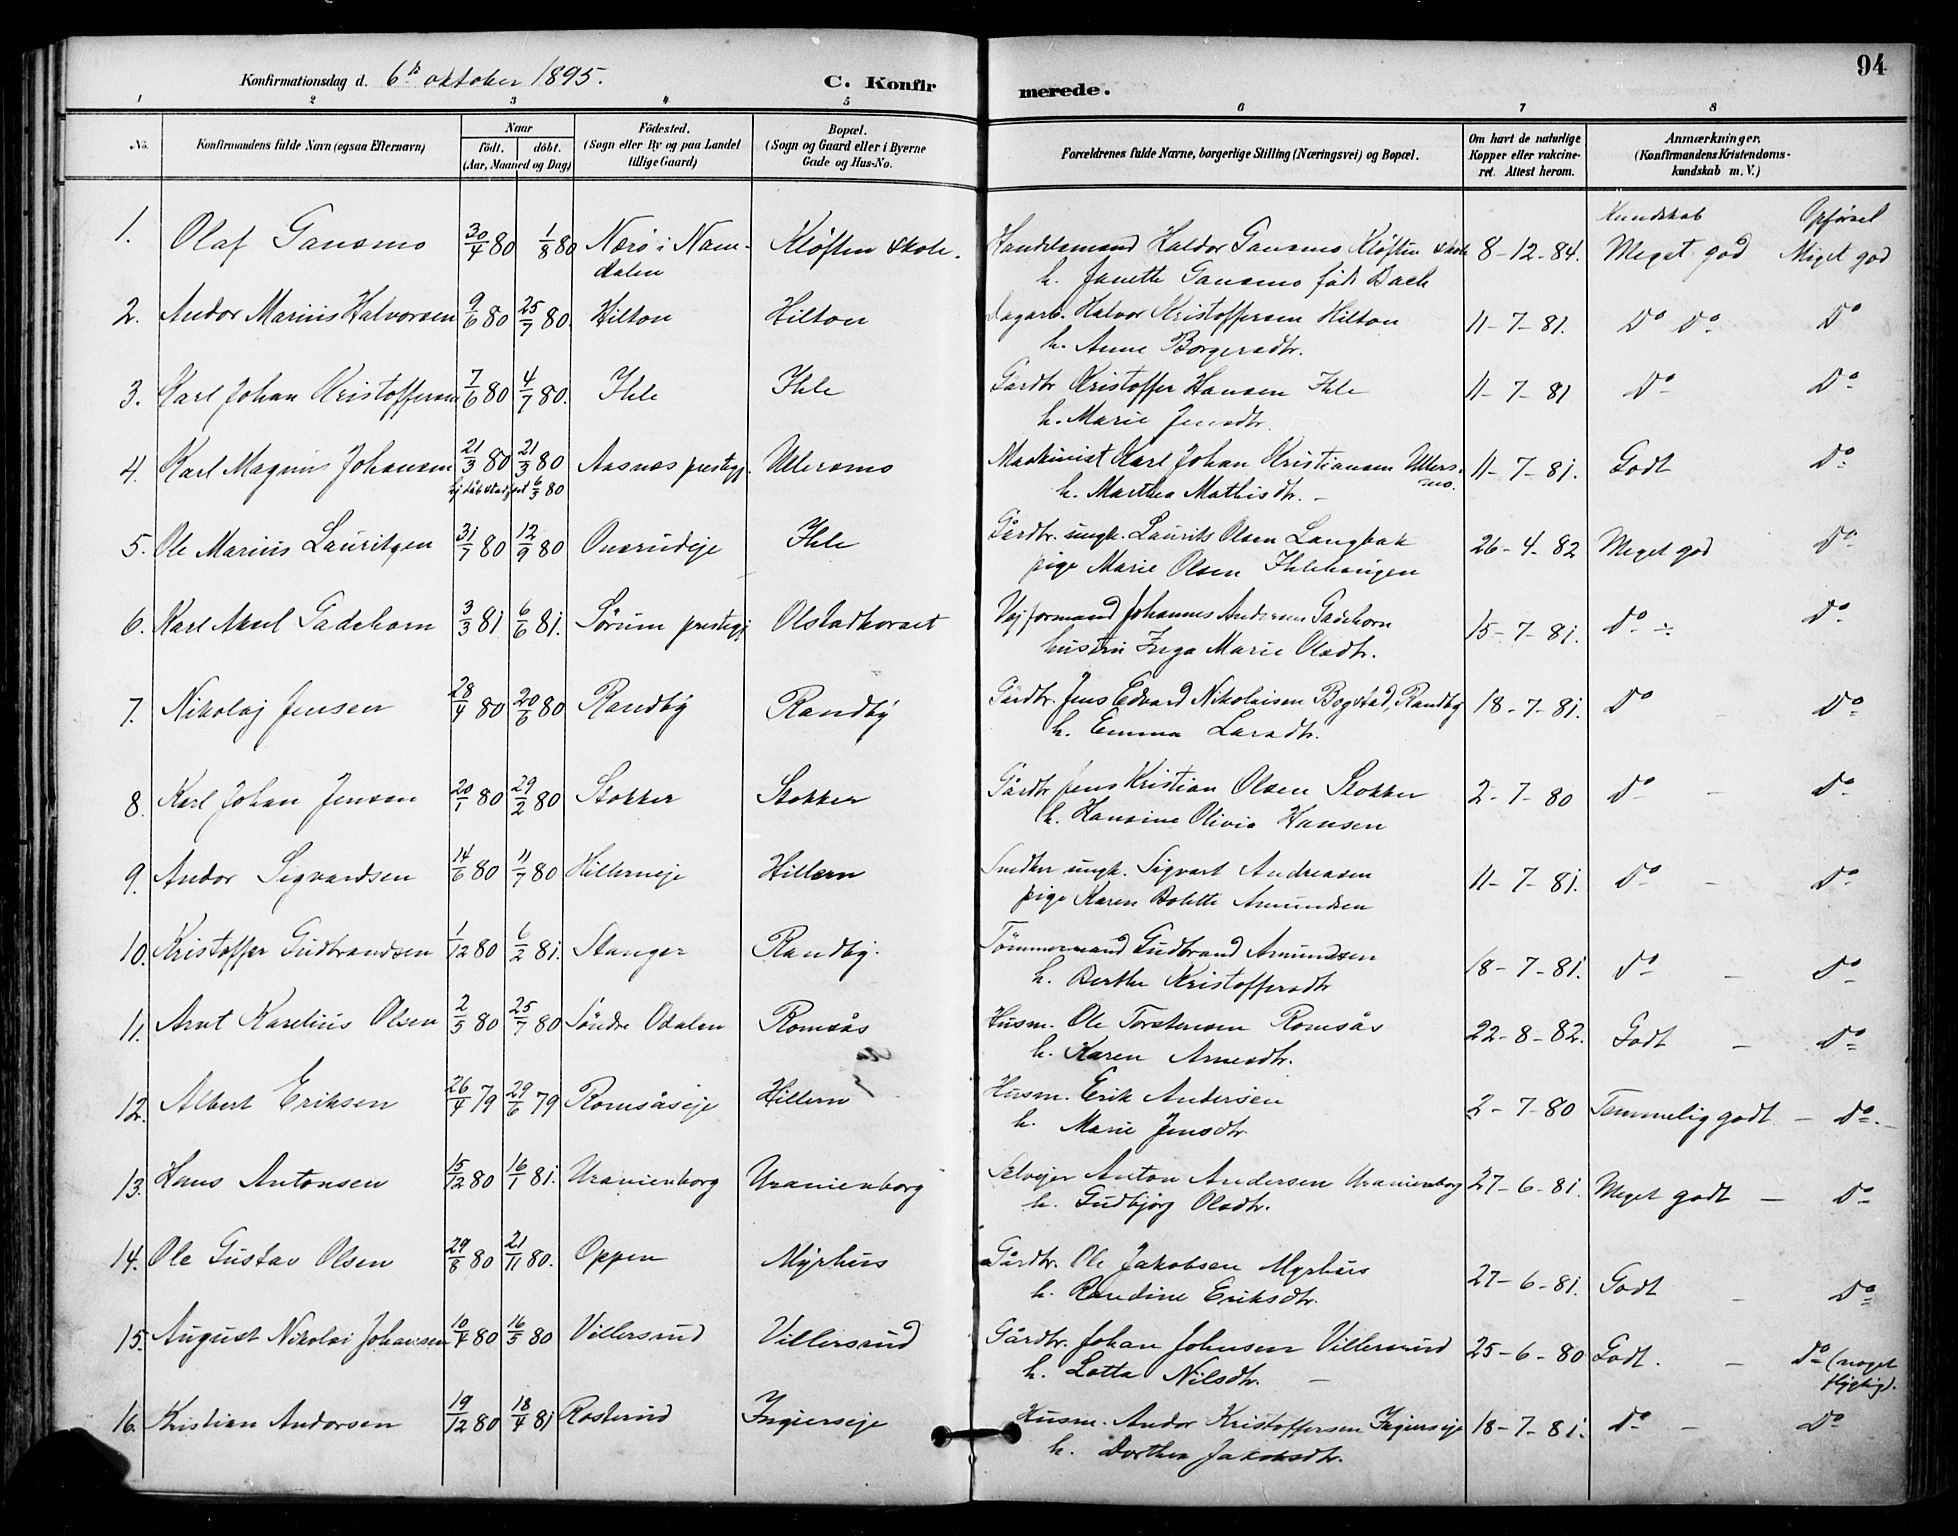 94
Konfirmationsdag d. 6te oktober 1895.
C. Konfir
merede.
1 2 3 4 5 6 7 8
No. Konfirmandens fulde Navn (ogsaa Efternavn) Naar Födested. Bopæl. Forældrenes fulde Navne, borgerlige Stilling (Næringsvei) og Bopæl. Om havt de naturlige Anmærkninger.
födt. döbt. (Sogn eller By og paa Landet (Sogn og Gaard eller i Byerne Kopper eller vakcine- (Konfirmandens Kristendoms-
(Aar, Maaned og Dag) tillige Gaard) Gade og Hus-No. ret. Attest herom. kundskab m. V.)
Kundskab Opførsel
1. Olaf Gansmo 30/4 80 1/8 80 Nærö i Nam- Kløften skole. Handelsmand Haldor Gansmo Kløften skole 8-12-84. Meget god Meget god
dalen h. Janette Gansmo født Bach
2. Andor Marius Halvorsen 9/6 80 25/7 80. Hilton Hilton Dagarb. Halvor Kristoffersen Hilton 11-7-81. Do Do Do
h. Anne Borgersdtr.
3. Karl Johan Kristoffersen 7/6 80 4/7 80. Ihle Ihle Gårdbr. Kristoffer Hansen Ihle 11-7-81 Do Do
h. Marie Jensdtr.
4. Karl Magnus Johansen 21/3 80 21/3 80 Aasnæs prestegj. Ullersmo Maskinist Karl Johan Kristiansen Ullers- 11-7-81. Godt Do
6/5 80 h. Marthea Mathisdtr. - mo.
5. Ole Marius Lauritzen 31/7 80 12/9 80 Onsrudeje Ihle Gårdbr. ungk. Laurits Olsen Langbak 26-4-82 Meget god Do
pige Marie Olsen Ihlehaugen
6. Karl Aksel Gadehorn 3/3 81 6/6 81. Sørum prestegj Olstadkorset Vejformand Johannes Andersen Gadehorn 15-7-81. Do ÷ Do
hustru Inga Marie Olsdtr.
7. Nikolaj Jensen 28/4 80 20/6 80 Randby Randby Gårdbr. Jens Edvard Nikolaisen Bogstad, Randby 18-7-81. Do - Do
h. Emma Larsdtr.
8. Karl Johan Jensen 20/1 80 29/2 80 Stokker Stokker Gårdbr. Jens Kristian Olsen Stokker 2-7-80 Do - Do
h. Hansine Olivia Hansen
9. Andor Sigvardsen 14/6 80 11/7 80 Hillerneje Hillern Snedker ungk. Sigvart Andreasen 11-7-81. Do - Do
pige Karen Bolette Amundsen
10. Kristoffer Gudbrandsen 1/12 80 6/2 81. Stanger Randby. Tömmermand Gudbrand Amundsen 18-7-81. Do - Do
h. Berthe Kristoffersdtr
11. Arnt Karelius Olsen 2/5 80 25/7 80 Söndre Odalen Romsås Husm. Ole Torstensen Romsås 22-8-82. Godt - Do
h. Karen Arnesdtr.
12. Albert Eriksen 26/4 79 29/6 79 Romsåseje Hillern Husm. Erik Andersen 2-7-80 Temmelig godt - Do. -
h. Marie Jensdtr.
13. Hans Antonsen 15/12 80 16/1 81. Uranienborg Uranienborg Selvejer Anton Andersen Uranienborg 27-6-81. Meget godt - Do
h. Gudbjörg Olsdtr.
14. Ole Gustav Olsen 29/8 80 21/11 80. Oppen Myrhus Gårdbr. Ole Jakobsen Myrhus 27-6-81. Godt - Do
h. Randine Eriksdtr.
15. August Nikolai Johansen 10/4 80 16/5 80 Villersrud Villersrud Gårdbr. Johan Johnsen Villersrud 25-6-80 Godt. - Do (noget
h. Lotta Nilsdtr. - flygtig).
16. Kristian Andorsen 19/12 80 18/4 81 Rosterud Ingierseje Husm. Andor Kristoffersen Ingierseje 18-7-81. Do - Do
h. Dorthea Jakobsdtr.